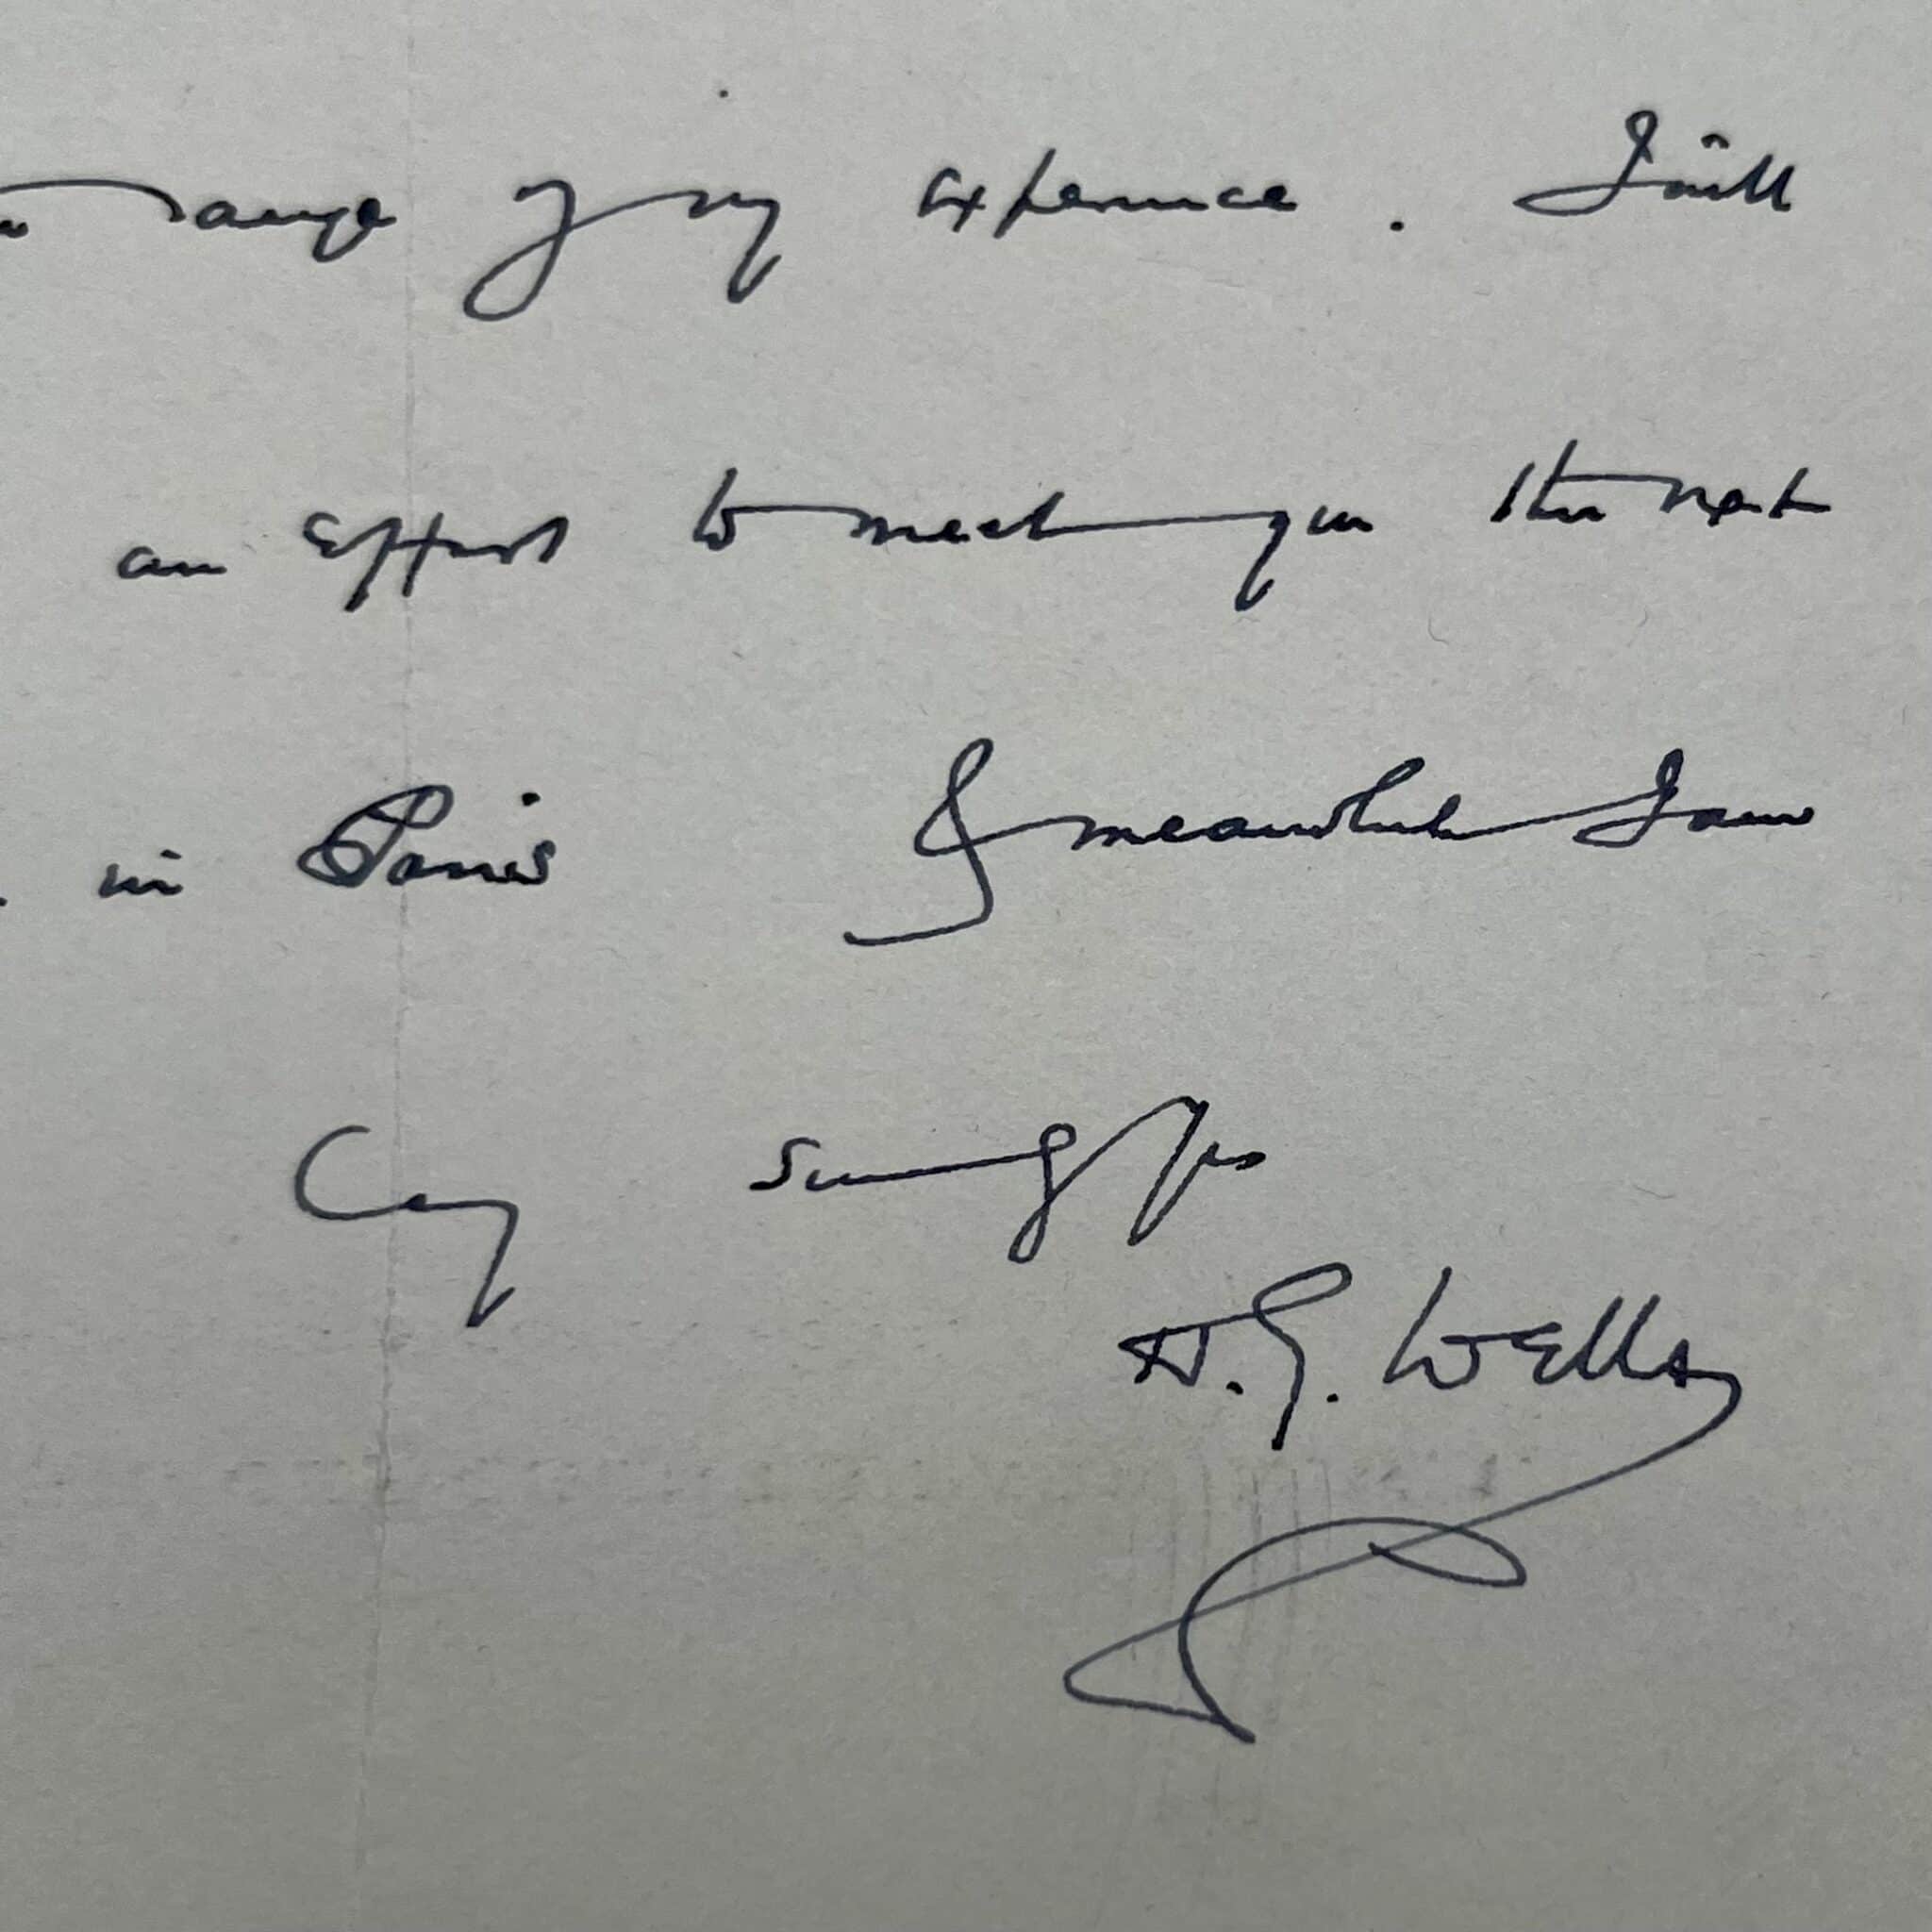 range of my experience. I will
an effort to meet you the next
in Paris & meanwhile I am
Very sincerely yours
H. G. Wells